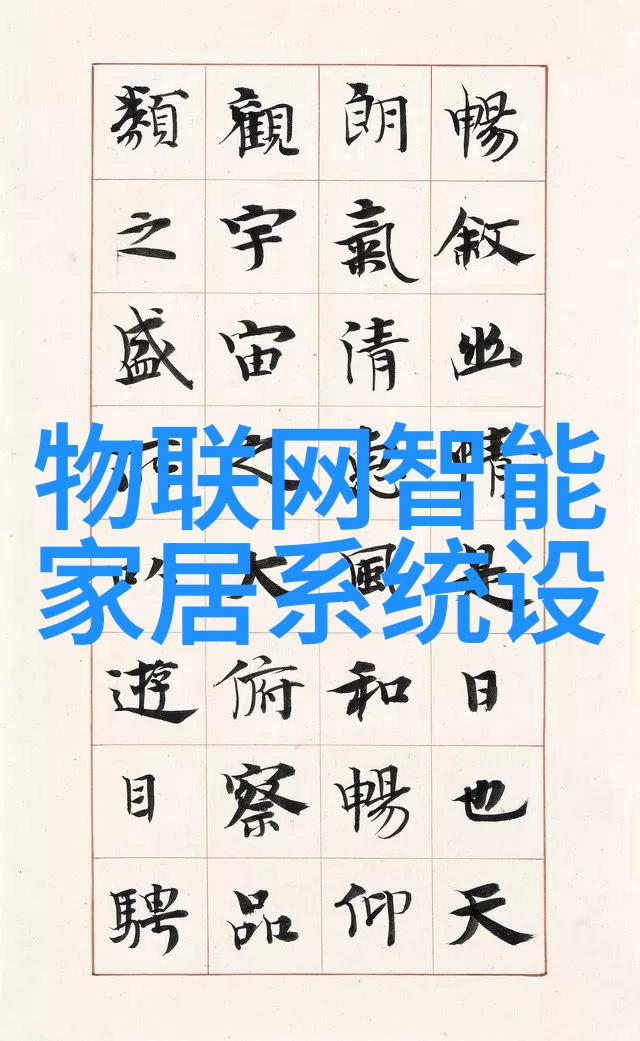 物联网智能
家居系统设
暢敘幽情是日也天
朗氣清惠風和暢仰
觀宇宙之大俯察品
類之盛所以遊目騁